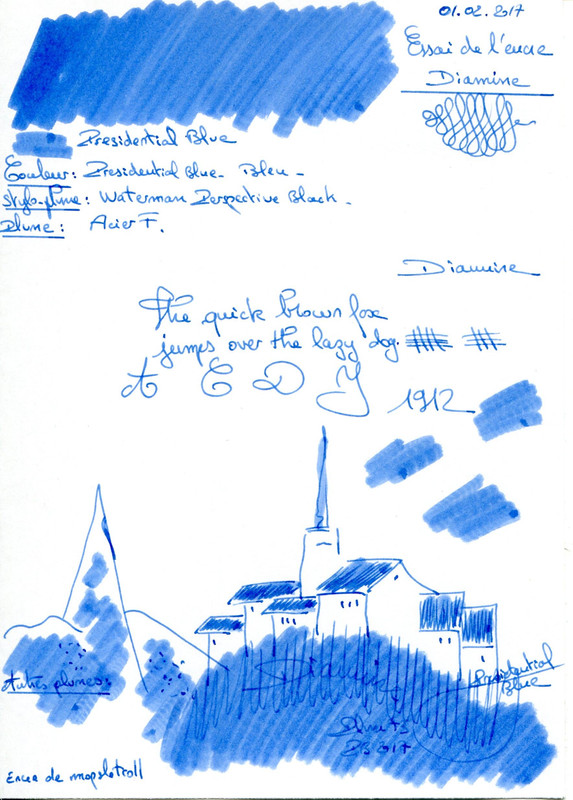 01.02.2017
Essai de l'encre
Diamine
Presidential Blue
Couleur: Presidential Blue - Bleu -
Stylo-plume: Waterman Perspective Black.
Plume: Acier F.
Diamine
The quick brown fox
jumps over the lazy dog.
A E D J
1912
Diamine
Presidential
Blue
Autres plumes:
2017
Encre de